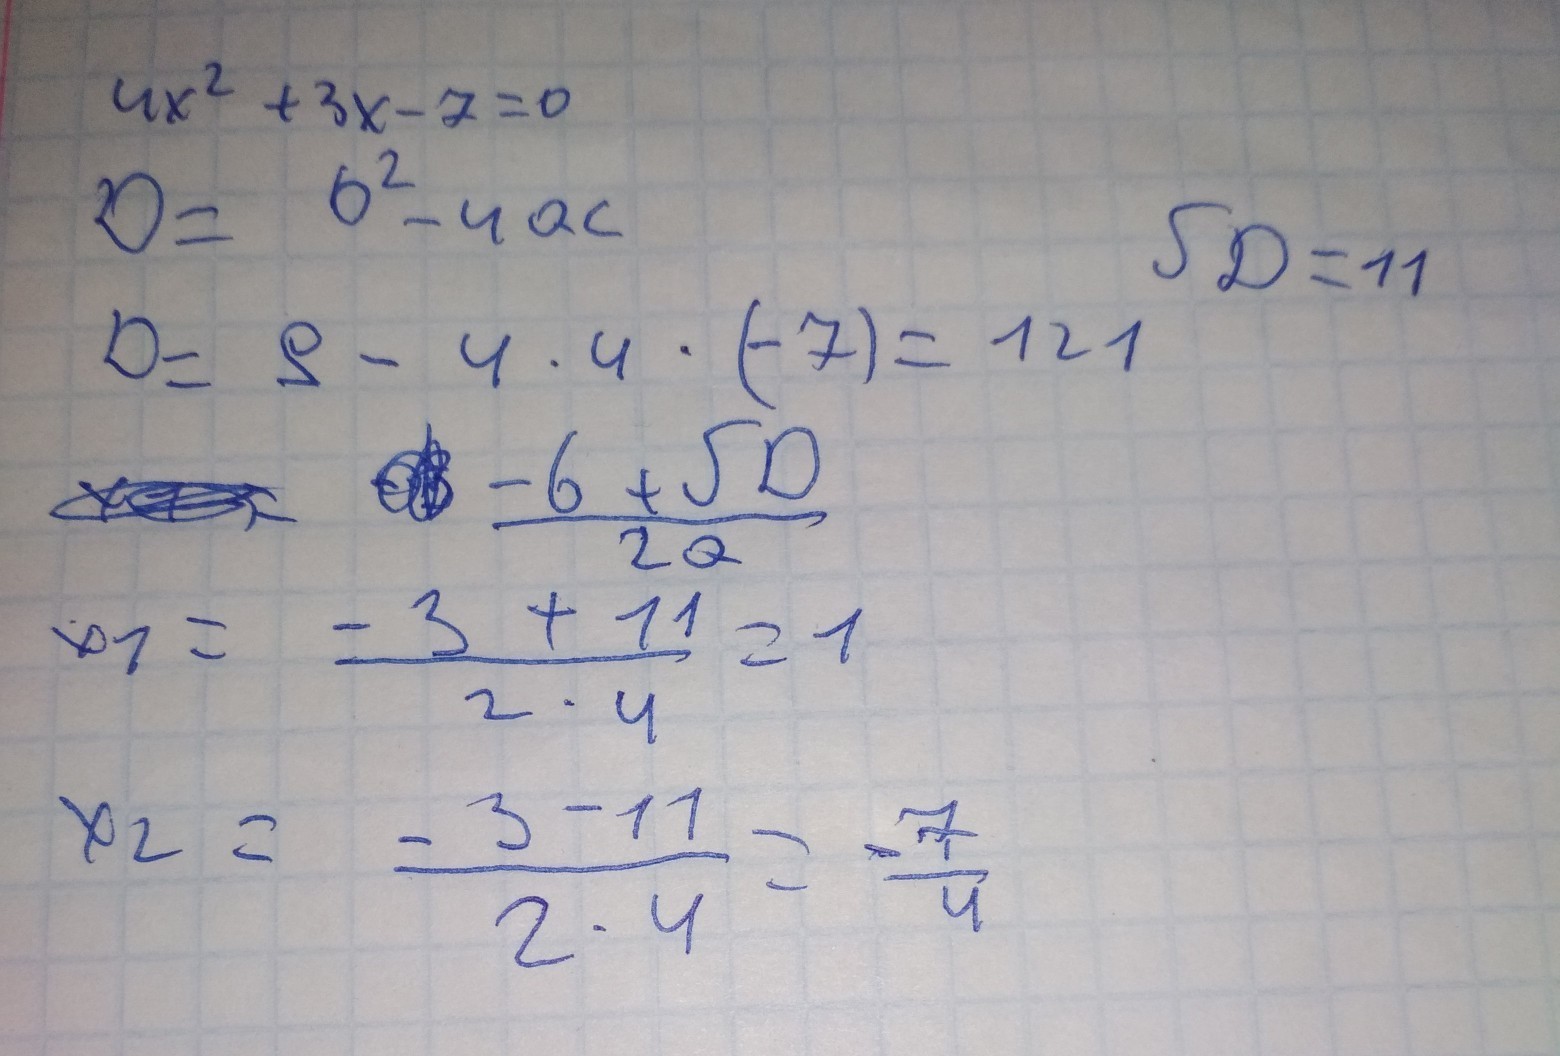 4x² + 3x - 7 = 0
D = b² - 4ac
√D = 11
D = 9 - 4 · 4 · (-7) = 121
(-b + √D) / 2a
x1 = (-3 + 11) / (2 · 4) = 1
x2 = (-3 - 11) / (2 · 4) = -7/4